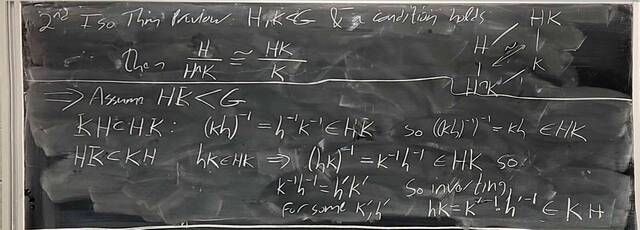 2nd Iso Thm Preview H, K<G & a condition holds
Then H/H∩K ≅ HK/K
HK
H
K
H∩K
⇒ Assume HK<G
KH⊂HK: (kh)⁻¹=h⁻¹k⁻¹∈HK so ((kh)⁻¹)⁻¹=kh ∈HK
HK⊂KH hk∈HK ⇒ (hk)⁻¹=k⁻¹h⁻¹∈HK so
k⁻¹h⁻¹=h'k' so inverting
for some k',h' hk=k'⁻¹h'⁻¹∈KH